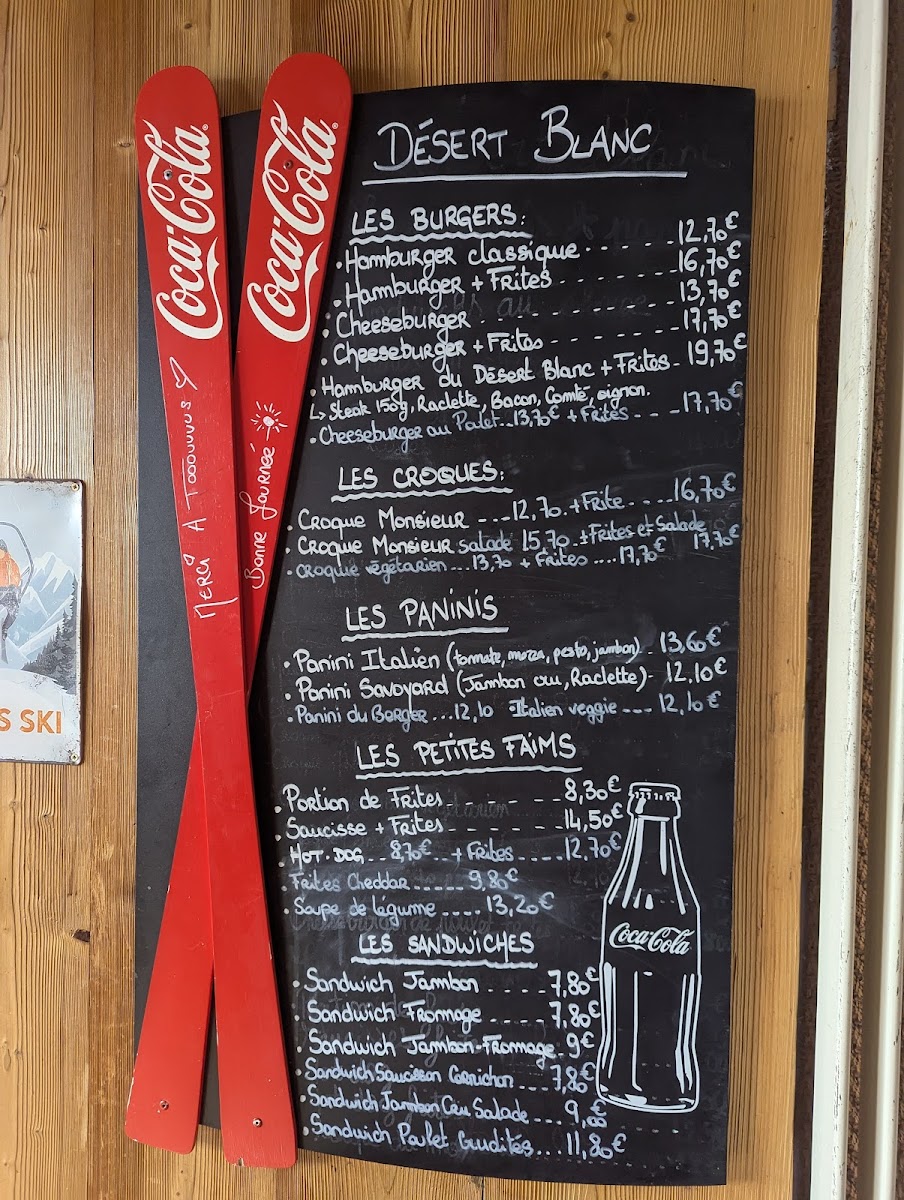 Coca-Cola
Coca-Cola
MERCi A TOOOUUUS
Bonne Journée
S SKI
DÉSERT BLANC
LES BURGERS:
• Hamburger classique - - - - - - 12,70€
• Hamburger + Frites - - - - - - 16,70€
• Cheeseburger - - - - - - 13,70€
• Cheeseburger + Frites - - - - - 17,70€
• Hamburger du Désert Blanc + Frites - 19,70€
↳ Steak 150g, Raclette, Bacon, Comté, oignon.
• Cheeseburger au Poulet...13,70€ + Frites ---- 17,70€
LES CROQUES:
• Croque Monsieur ---12,70 + Frite ---- 16,70€
• Croque Monsieur salade 15,70 + Frites et Salade 17,70€
• croque végétarien ... 13,70 + Frites .... 17,70€
LES PANINIS
• Panini Italien (tomate, mozza, pesto, jambon) - 13,60€
• Panini Savoyard (Jambon cru, Raclette) - 12.10€
• Panini du Berger ... 12,10 Italien veggie --- 12,10€
LES PETITES FAIMS
• Portion de Frites - - - - - 8,30€
• Saucisse + Frites - - - - - 14,50€
• HOT-DOG ... 8,70€ ... + Frites ..... 12,70€
• Frites Cheddar ..... 9,80€
• Soupe de légume .... 13,20€
LES SANDWICHES
• Sandwich Jambon - - - - - 7,80€
• Sandwich Fromage - - - - - 7,80€
• Sandwich Jambon-Fromage - 9€
• Sandwich Saucisson Cornichon ---- 7,80€
• Sandwich Jambon Cru Salade ---- 9,00€
• Sandwich Poulet Crudités... 11,80€
Coca-Cola